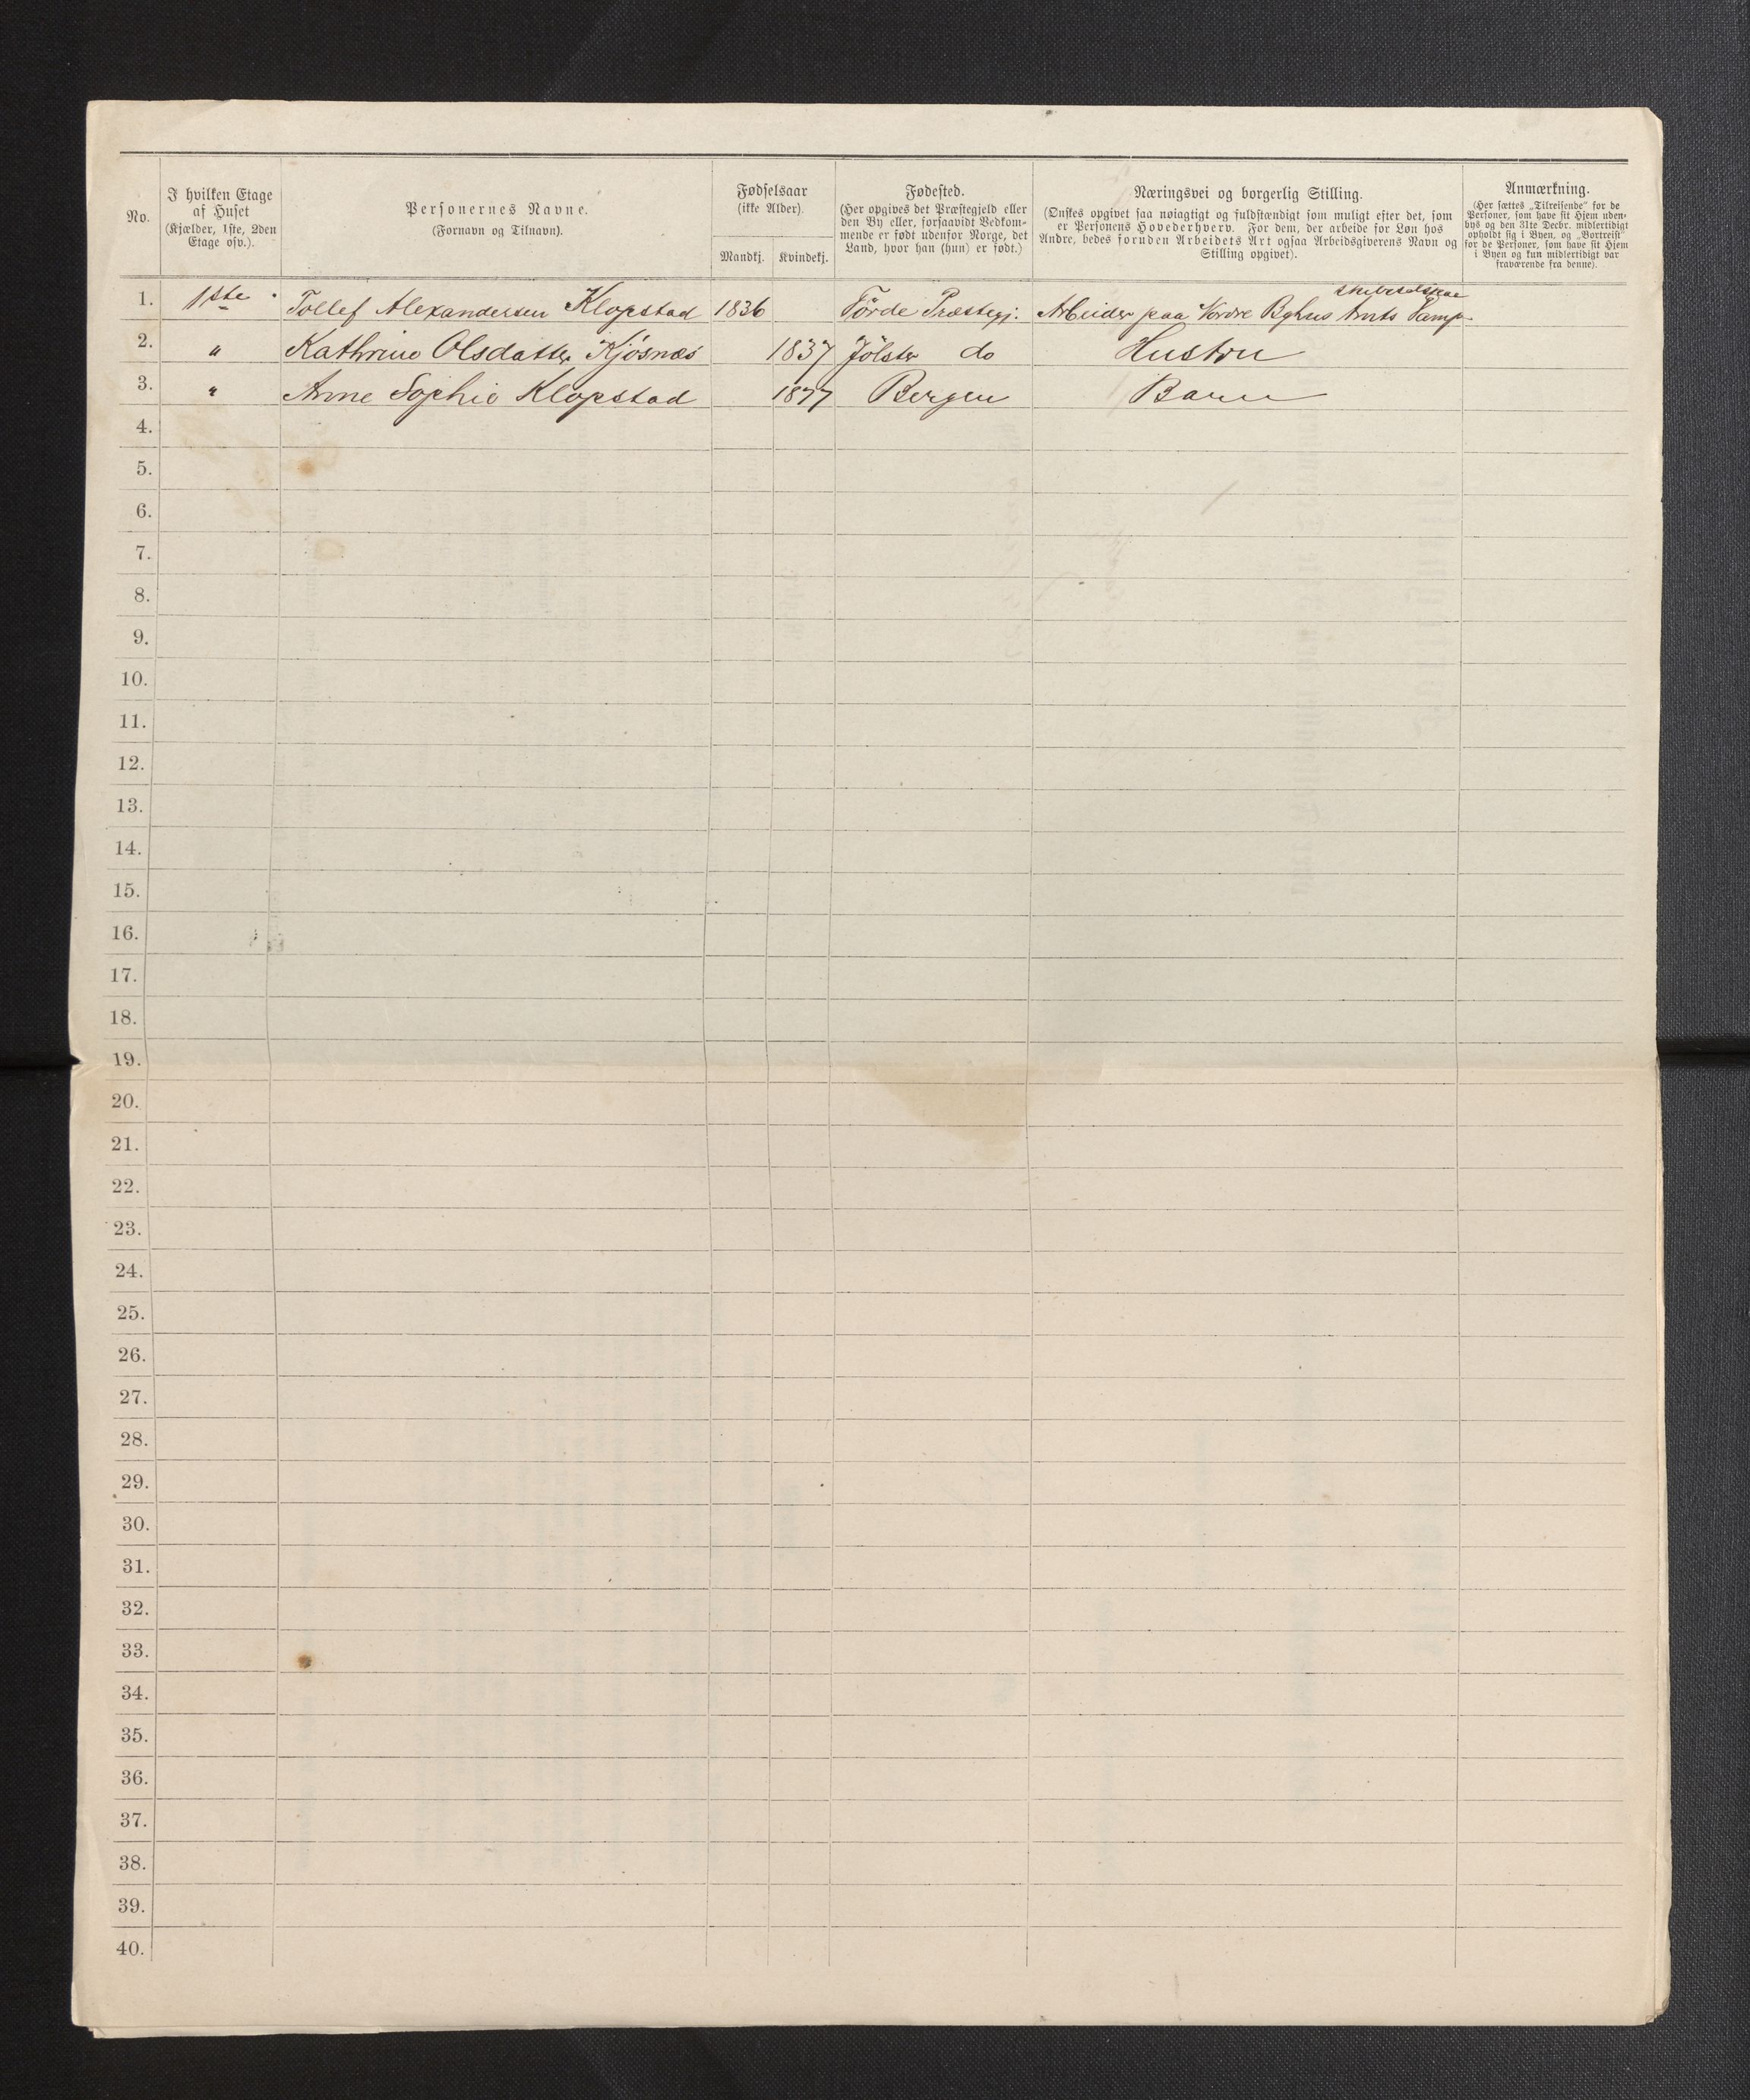 No.
I hvilken Etage
af Huset
(Kjælder, 1ste, 2den
Etage osv.).
Personernes Navne.
(Fornavn og Tilnavn).
Fødselsaar
(ikke Alder).
Mandkj. Kvindekj.
Fødested.
(Her opgives det Præstegjeld eller
den By eller, forsaavidt Vedkom-
mende er født udenfor Norge, det
Land, hvor han (hun) er født.)
Næringsvei og borgerlig Stilling.
(Ønskes opgivet saa nøiagtigt og fuldstændigt som muligt efter det, som
er Personens Hovederhverv. For dem, der arbeide for Løn hos
Andre, bedes foruden Arbeidets Art ogsaa Arbeidsgiverens Navn og
Stilling opgivet).
Anmærkning.
(Her sættes „Tilreisende“ for de
Personer, som have sit Hjem uden-
bys og den 31te Decbr. midlertidigt
opholdt sig i Byen, og „Bortreist“
for de Personer, som have sit Hjem
i Byen og kun midlertidigt var
fraværende fra denne).
1. 1ste Tollef Alexandersen Klopstad 1836 Förde Præstegj. Arbeider paa Nordre Amts Damp-
2. " Kathrine Olsdatter Kjösnes 1837 Jölster do Hustru
3. " Anne Sophie Klopstad 1877 Bergen Barn
4.
5.
6.
7.
8.
9.
10.
11.
12.
13.
14.
15.
16.
17.
18.
19.
20.
21.
22.
23.
24.
25.
26.
27.
28.
29.
30.
31.
32.
33.
34.
35.
36.
37.
38.
39.
40.